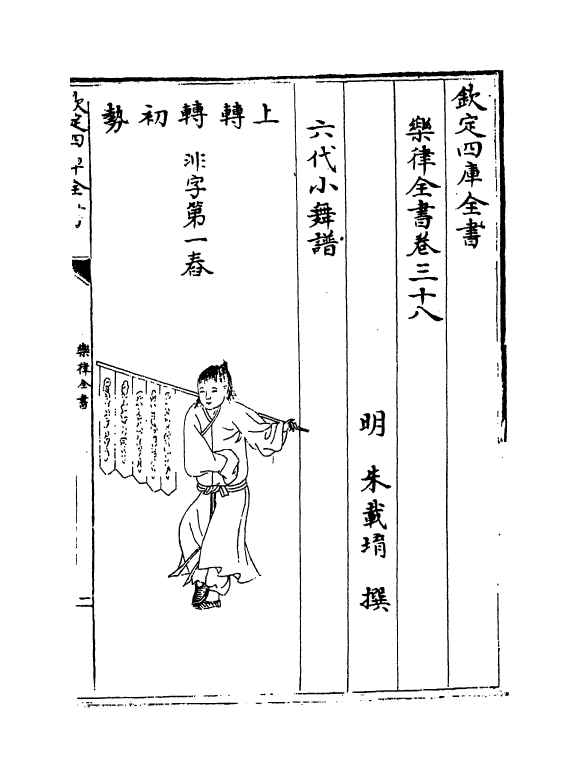 欽定四庫全書
樂律全書卷三十八
明 朱載堉 撰
六代小舞譜
上轉轉初勢
非字第一舂
樂律全書
二